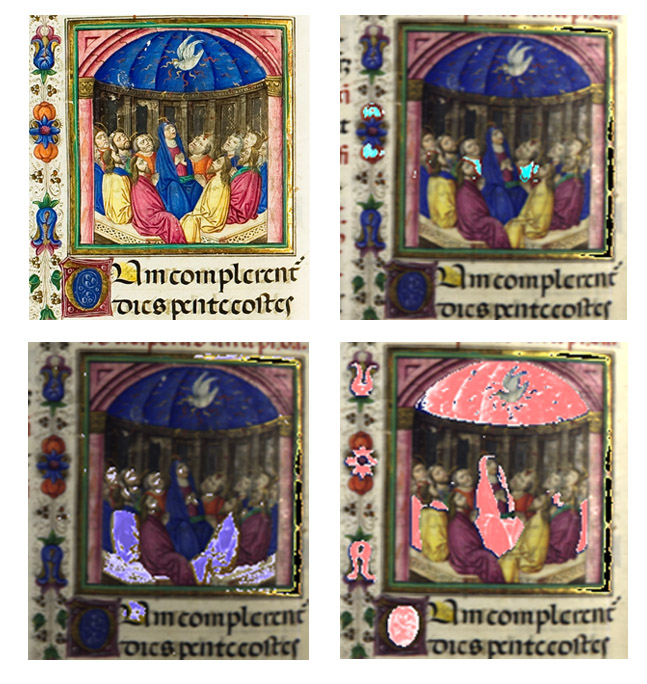 CUm complerent
dies pentecostes
CUm complerent
dies pentecostes
CUm complerent
dies pentecostes
CUm complerent
dies pentecostes